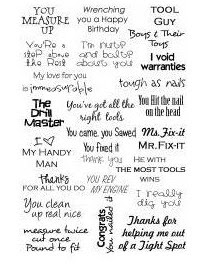 YOU
MEASURE
UP
Wrenching
you a Happy
Birthday
TOOL
GUY
Boys & Their
Toys
You're a
step above
the Rest
I'm nuts
and bolts
about you
I void
warranties
My love for you
is immeasurable
tough as nails
The
Drill
Master
You've got all the
right tools
You Hit the nail
on the head
You came, you Sawed
Ms. Fix-it
I ♡
My Handy
Man
You fixed it
Mr. Fix-it
thank you
He with
the most tools
wins
thanks
for all you do
You rev
my engine
I really
dig you
You clean
up real nice
Congrats
You nailed it
measure twice
cut once
Pound to fit
Thanks for
helping me out
of a Tight Spot